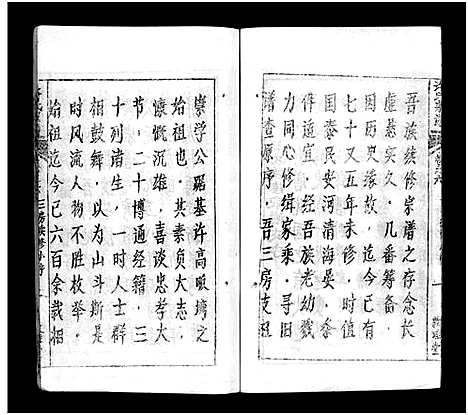 吾族续修宗谱之存念长
虚慈实久，几番筹备，
因历史缘故，迄今已有
七十又五年未修，时值
国泰民安河清海晏，参
修适宜，经吾族老幼戮
力同心修缉家乘，寻旧
谱查原序，吾三房支祖
崇学公踞基许高畈塆之
始祖也，其素负大志，
慷慨沉雄，喜谈忠孝大
节，二十博通经籍，三
十列诸生，一时人士群
相鼓舞，以为山斗斯是
时风流人物，不胜枚举，
始祖迄今已六百余载，相
三房续修谱序